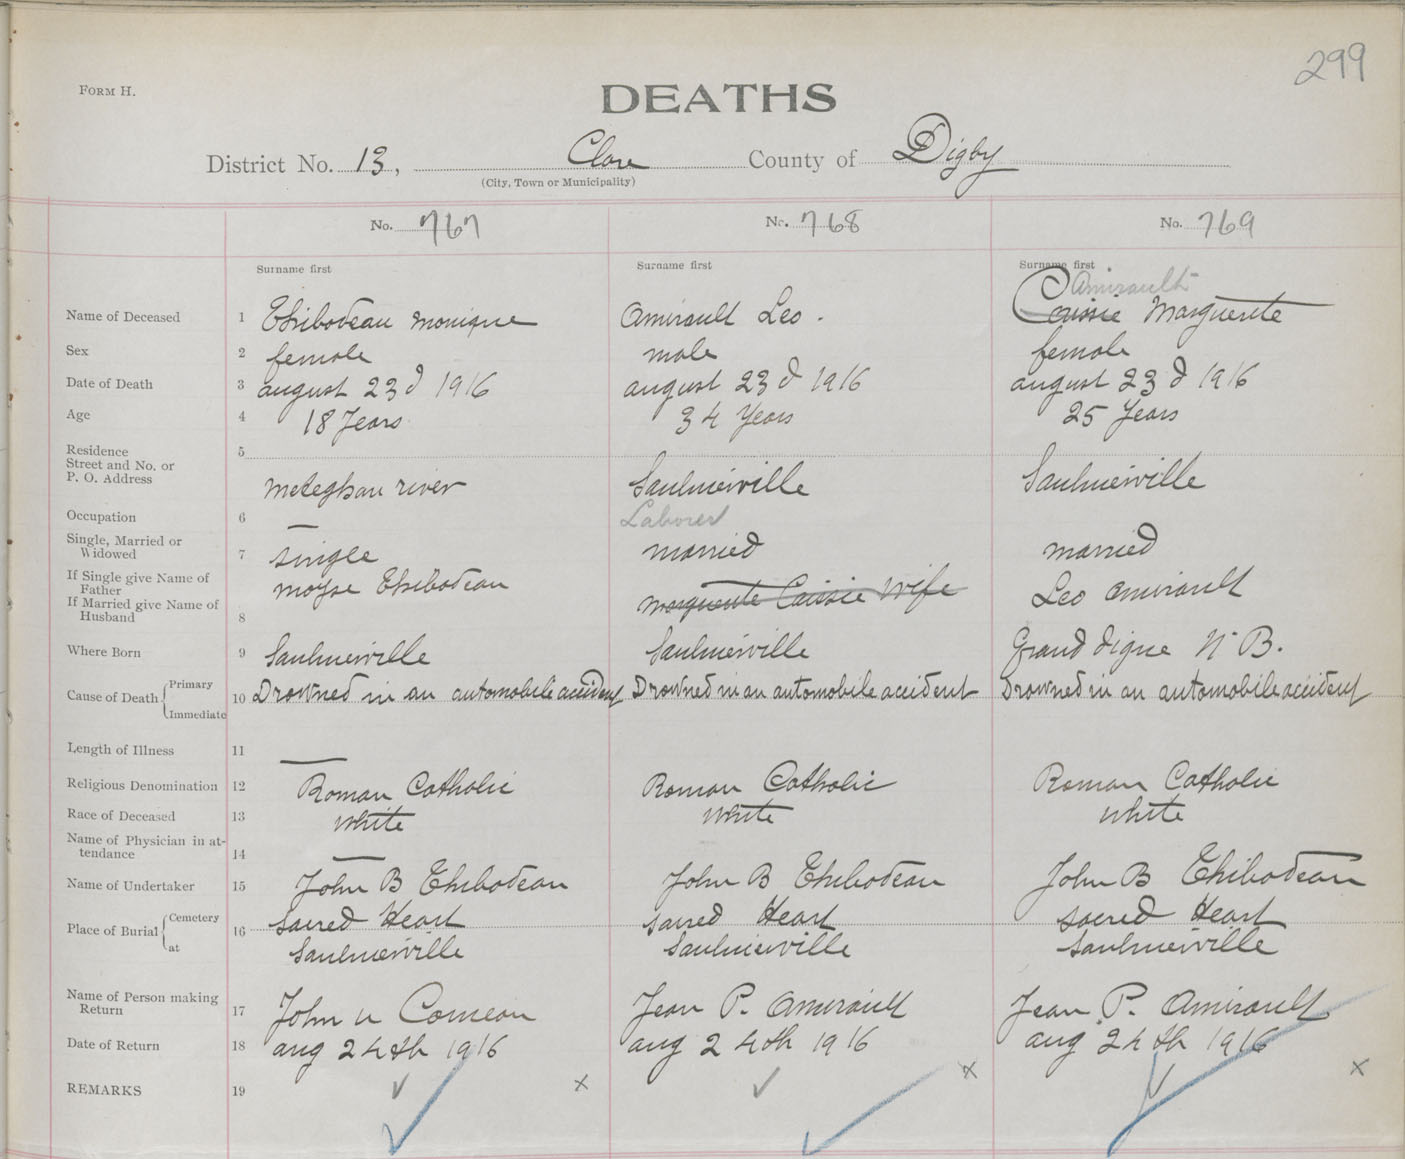 299
FORM H.
DEATHS
District No. 13, Clare County of Digby
(City, Town or Municipality)
No. 767 No. 768 No. 769
Surname first Surname first Surname first
Amirault
Name of Deceased 1 Thibodeau Monique Amirault Leo. Caissie Marguerite
Sex 2 female male female
Date of Death 3 august 23d 1916 august 23d 1916 august 23d 1916
Age 4 18 Years 34 Years 25 Years
Residence 5
Street and No. or
P. O. Address Meteghan river Saulnierville Saulnierville
Occupation 6 — Laborer
Single, Married or
Widowed 7 single married married
If Single give Name of
Father Moyse Thibodeau Marguerite Caissie Wife Leo Amirault
If Married give Name of
Husband 8
Where Born 9 Saulnierville Saulnierville Grand digue N. B.
Cause of Death { Primary
10 Drowned in an automobile accident Drowned in an automobile accident Drowned in an automobile accident
Immediate
Length of Illness 11 —
Religious Denomination 12 Roman Catholic Roman Catholic Roman Catholic
Race of Deceased 13 White White White
Name of Physician in at-
tendance 14 —
Name of Undertaker 15 John B Thibodeau John B Thibodeau John B Thibodeau
Place of Burial { Cemetery 16 Sacred Heart Sacred Heart Sacred Heart
at Saulnierville Saulnierville Saulnierville
Name of Person making
Return 17 John N Comeau Jean P. Amirault Jean P. Amirault
Date of Return 18 aug 24th 1916 aug 24th 1916 aug 24th 1916
REMARKS 19 ✓ x ✓ x ✓ x